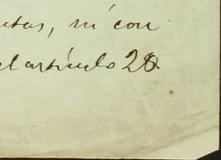 utas, ni con
el artículo 28.